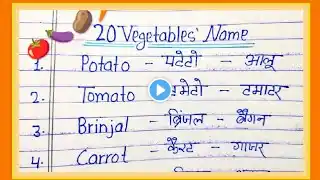 20 Vegetables' Name
1. Potato - पटेटो - आलू
2. Tomato - टमेटो - टमाटर
3. Brinjal - ब्रिंजल - बैंगन
4. Carrot - कैरट - गाजर